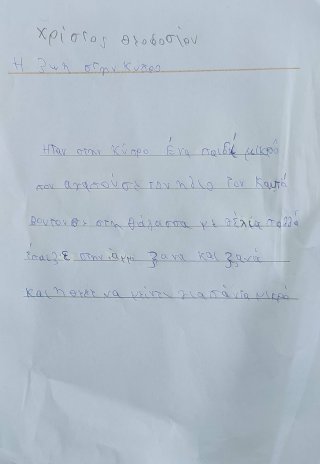 Χρίστος Θεοδοσίου
Η ζωη στην Κυπρο
Ηταν στην Κύπρο ένα παιδί μικρό
που αγαπούσε τον ηλιο τον καυτό
βουτουσε στη θάλασσα με γέλια πολλά
έπαιζε στην άμμο ξανα και ξανά
και ηθελε να μείνει για πάντα μικρό